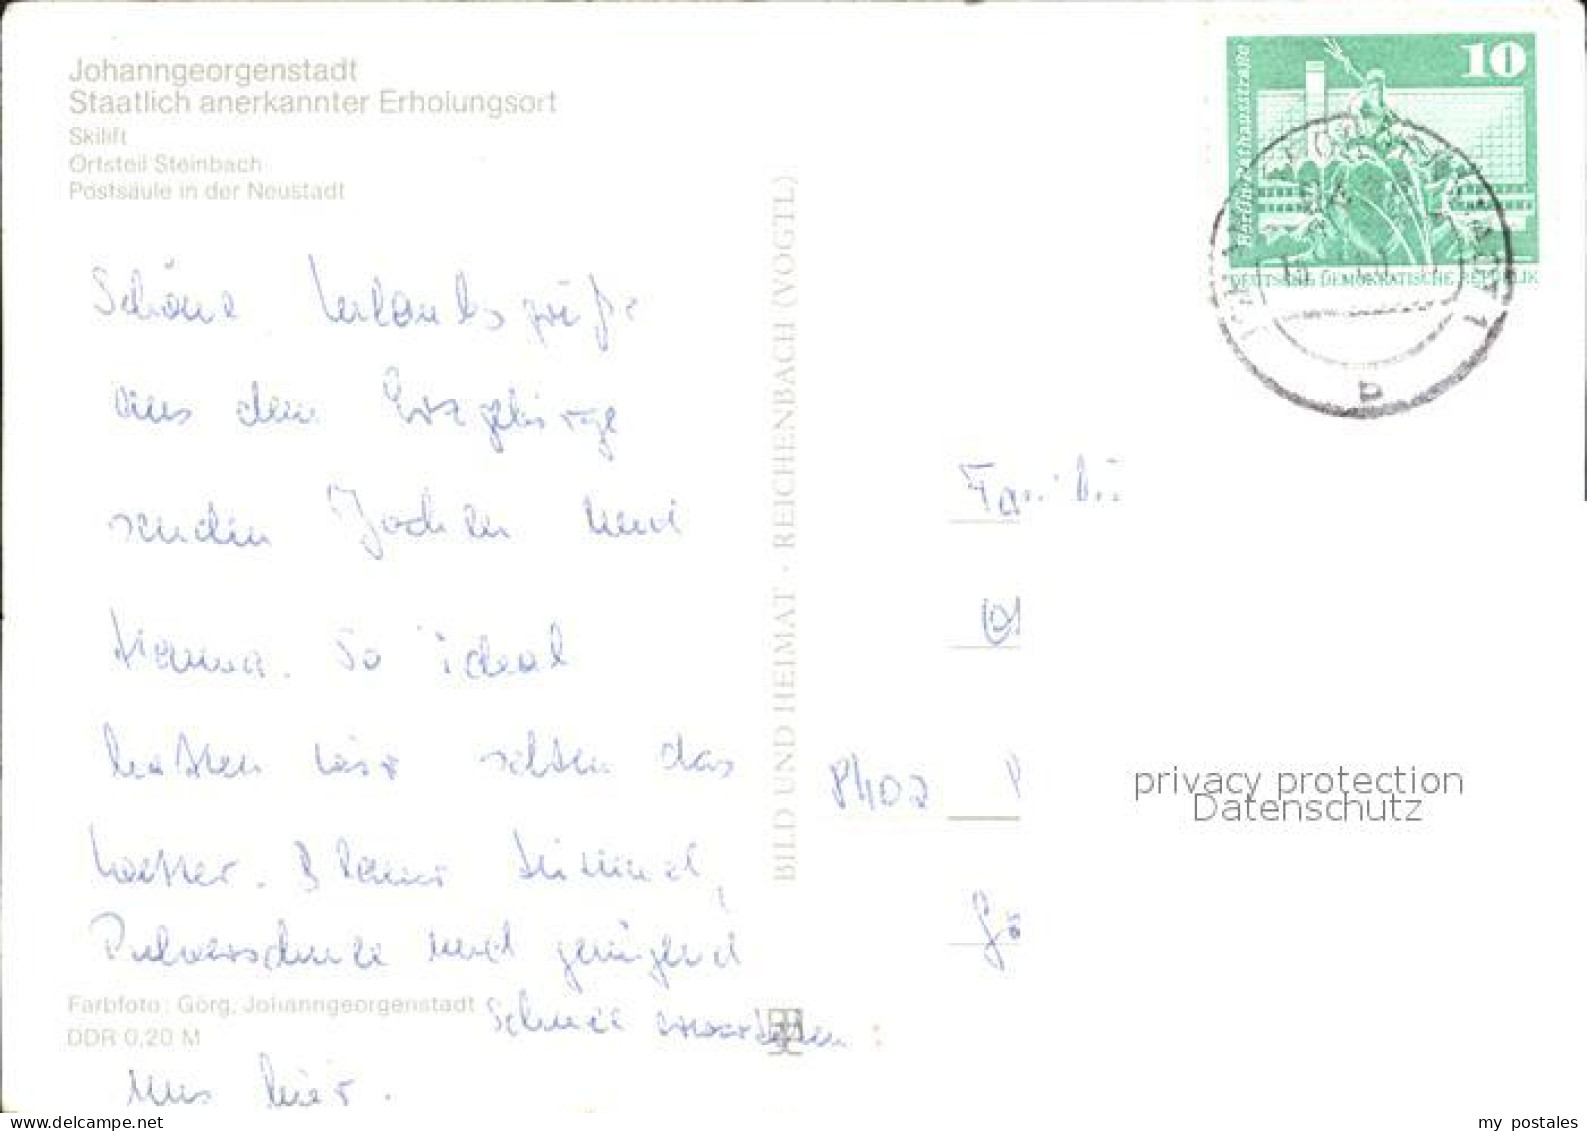 Johanngeorgenstadt
Staatlich anerkannter Erholungsort
Skilift
Ortsteil Steinbach
Postsäule in der Neustadt
Schöne Urlaubsgrüße
aus dem Erzgebirge
senden Jochen und
Hanna. So ideal
hatten wir selten das
Wetter. Blauer Himmel,
Pulverschnee und genügend
Schnee erwarteten
uns hier.
Farbfoto: Görg, Johanngeorgenstadt
DDR 0,20 M
BILD UND HEIMAT · REICHENBACH (VOGTL)
10
Berlin Rathausstraße
DEUTSCHE DEMOKRATISCHE REPUBLIK
1
b
Familie
privacy protection
Datenschutz
www.ansichtskartenversand.com
my postales